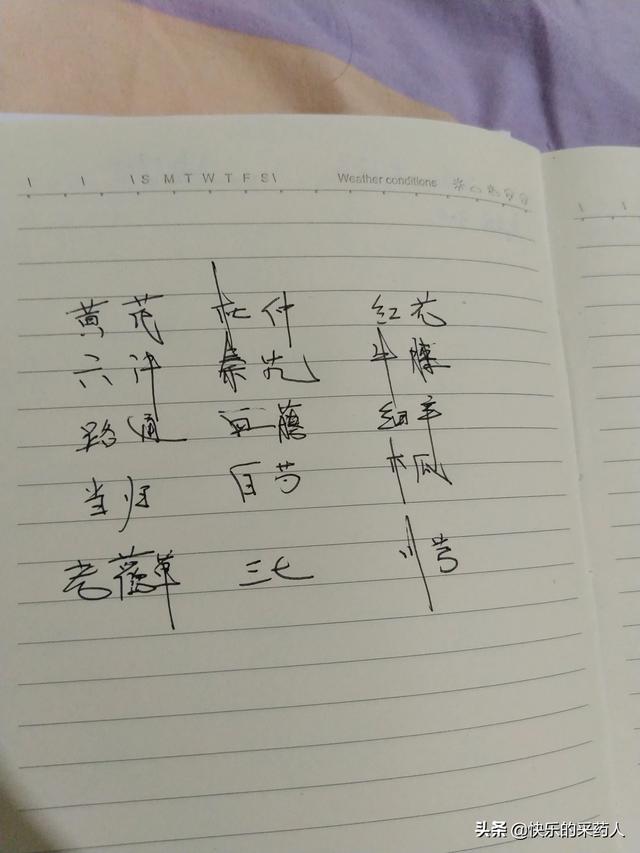 \ \ \S M T W T F S\ Weather conditions
黄芪 杜仲 红花
六汗 秦艽 牛膝
路通 血藤 细辛
当归 白芍 木瓜
老鹳草 三七 川芎
头条 @快乐的采药人